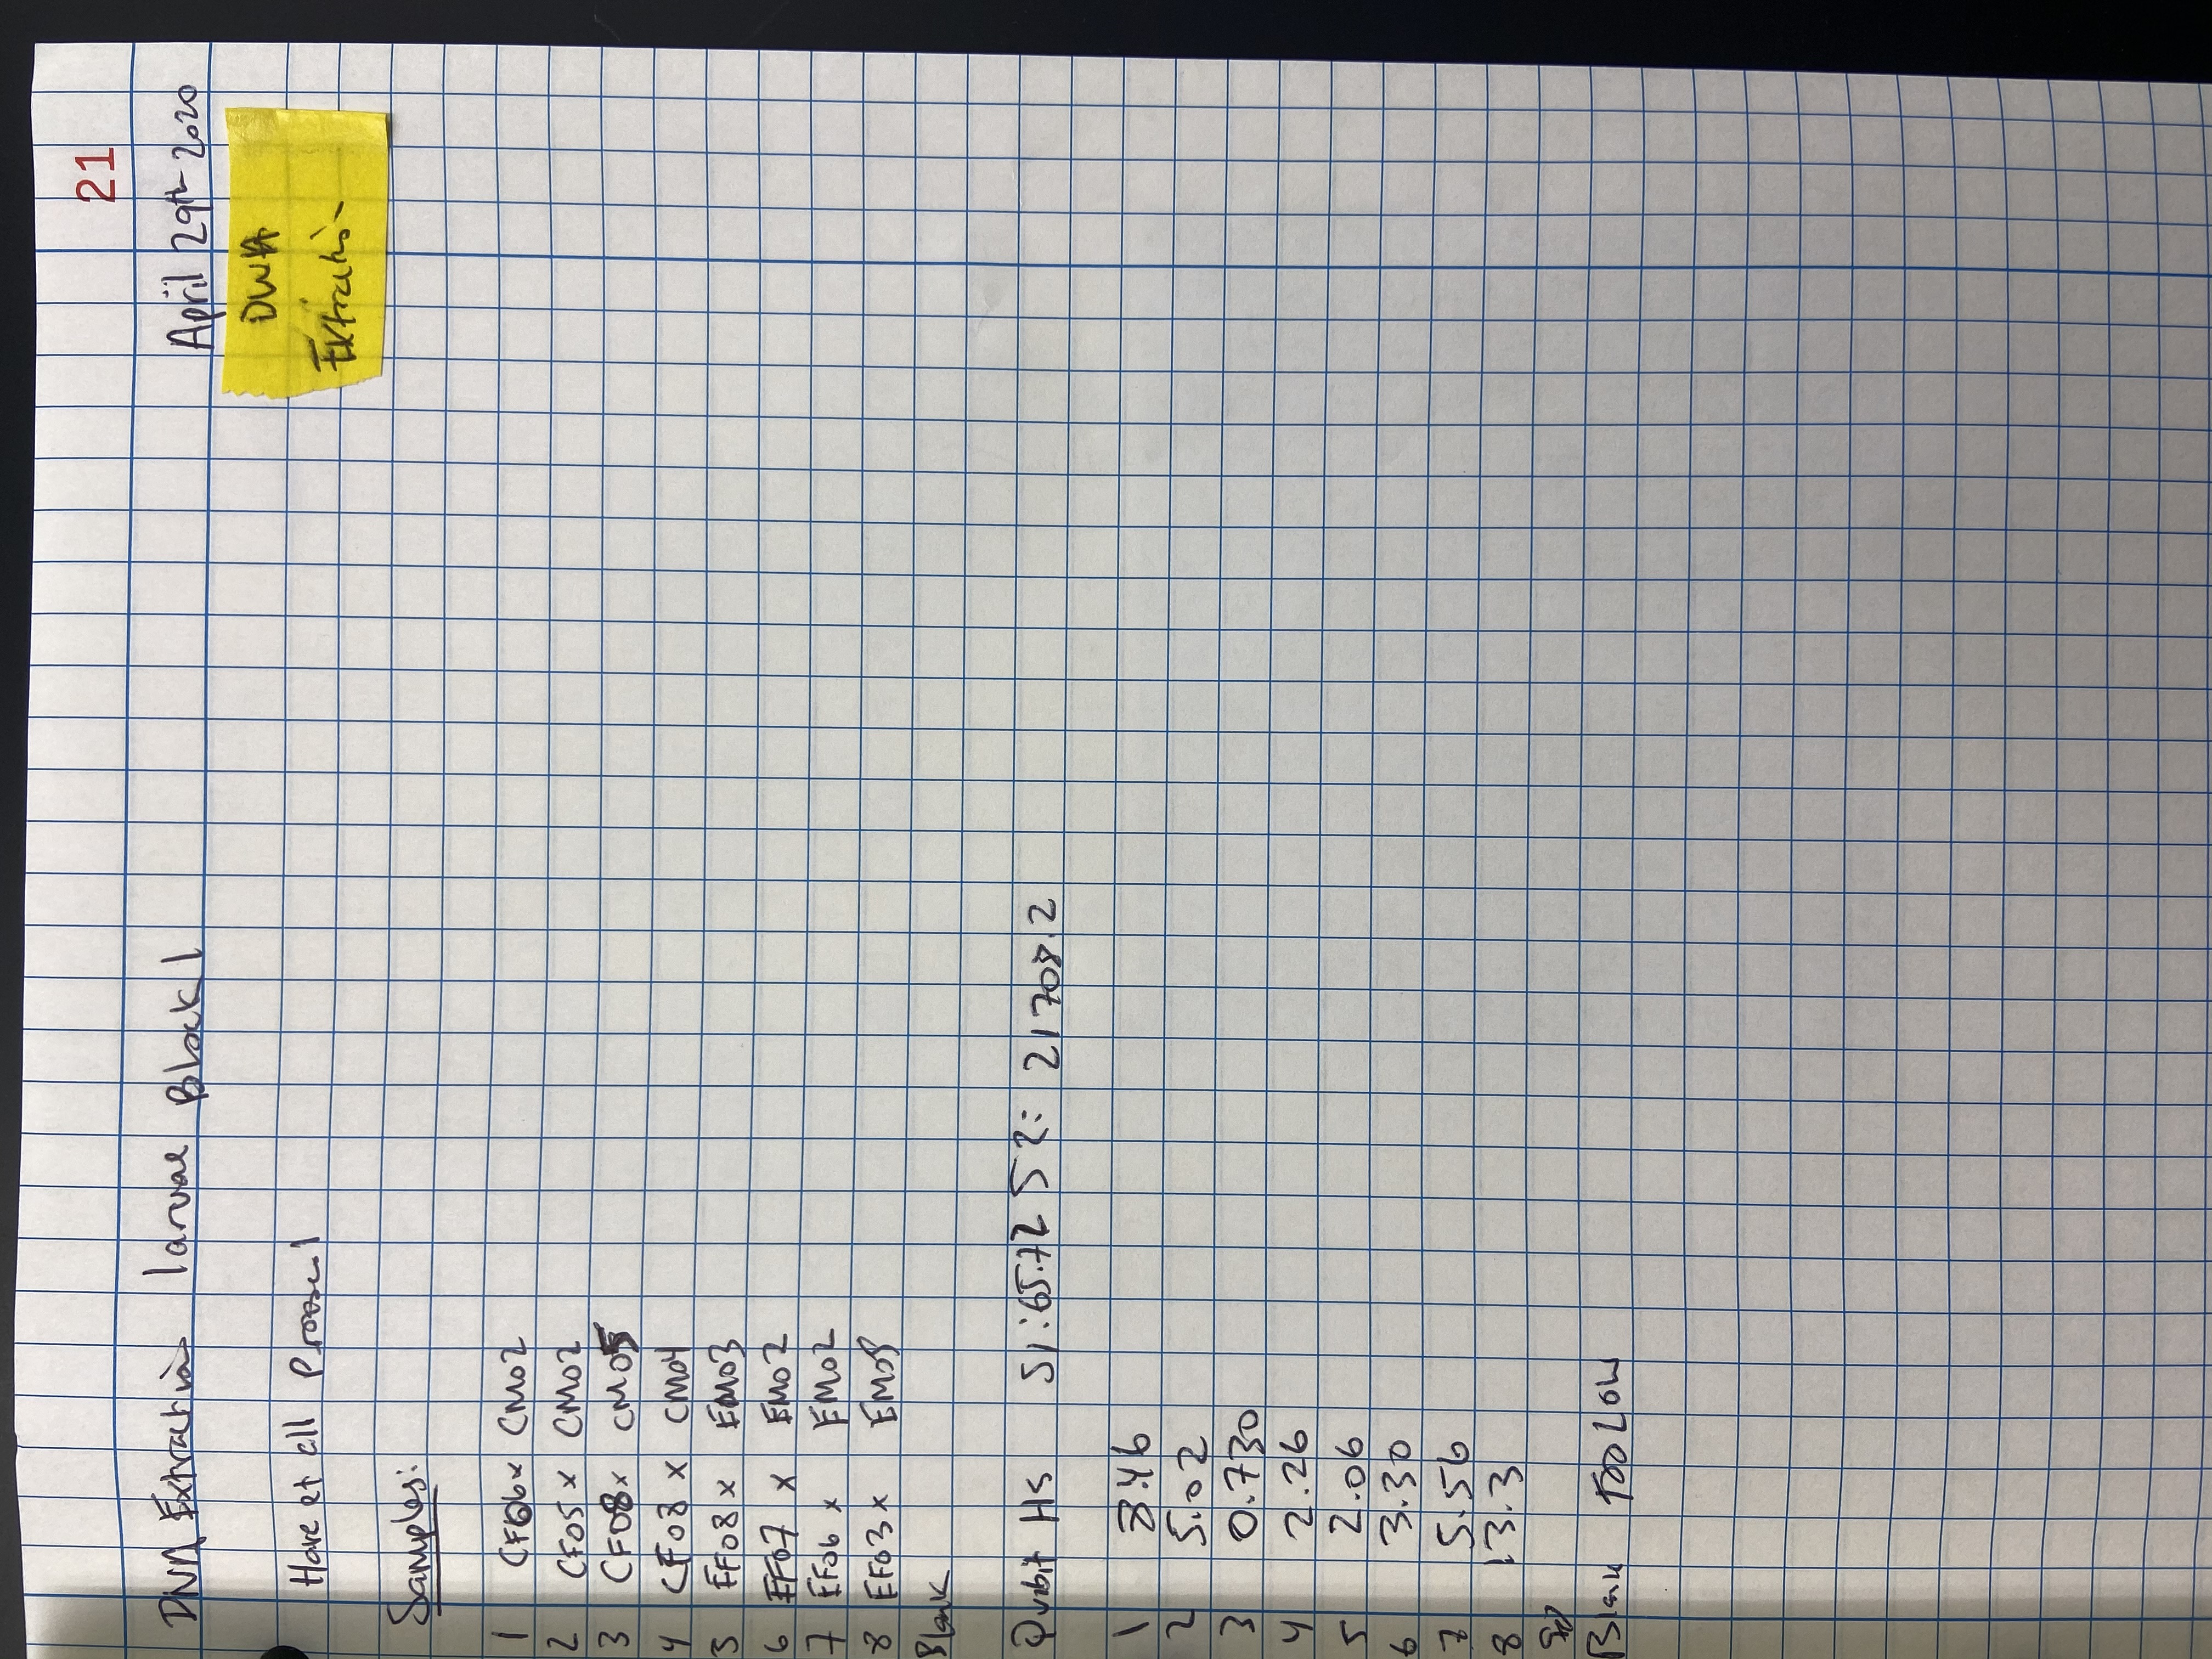 21
DNA Extraction larvae Block 1
April 29th 2020
DNA
Extraction
Hare et all
Samples:
1 CF06 x CM02
2 CF05 x CM02
3 CF08 x CM05
4 CF03 x CM04
5 EF08 x EM03
6 EF07 x EM02
7 EF06 x EM02
8 EF03 x
Blank
Qubit HS S1: 65.72 S2: 21708.2
1 8.46
2 5.02
3 0.730
4 2.26
5 2.06
6 3.30
7 5.56
8 13.3
Blank TOO LOW